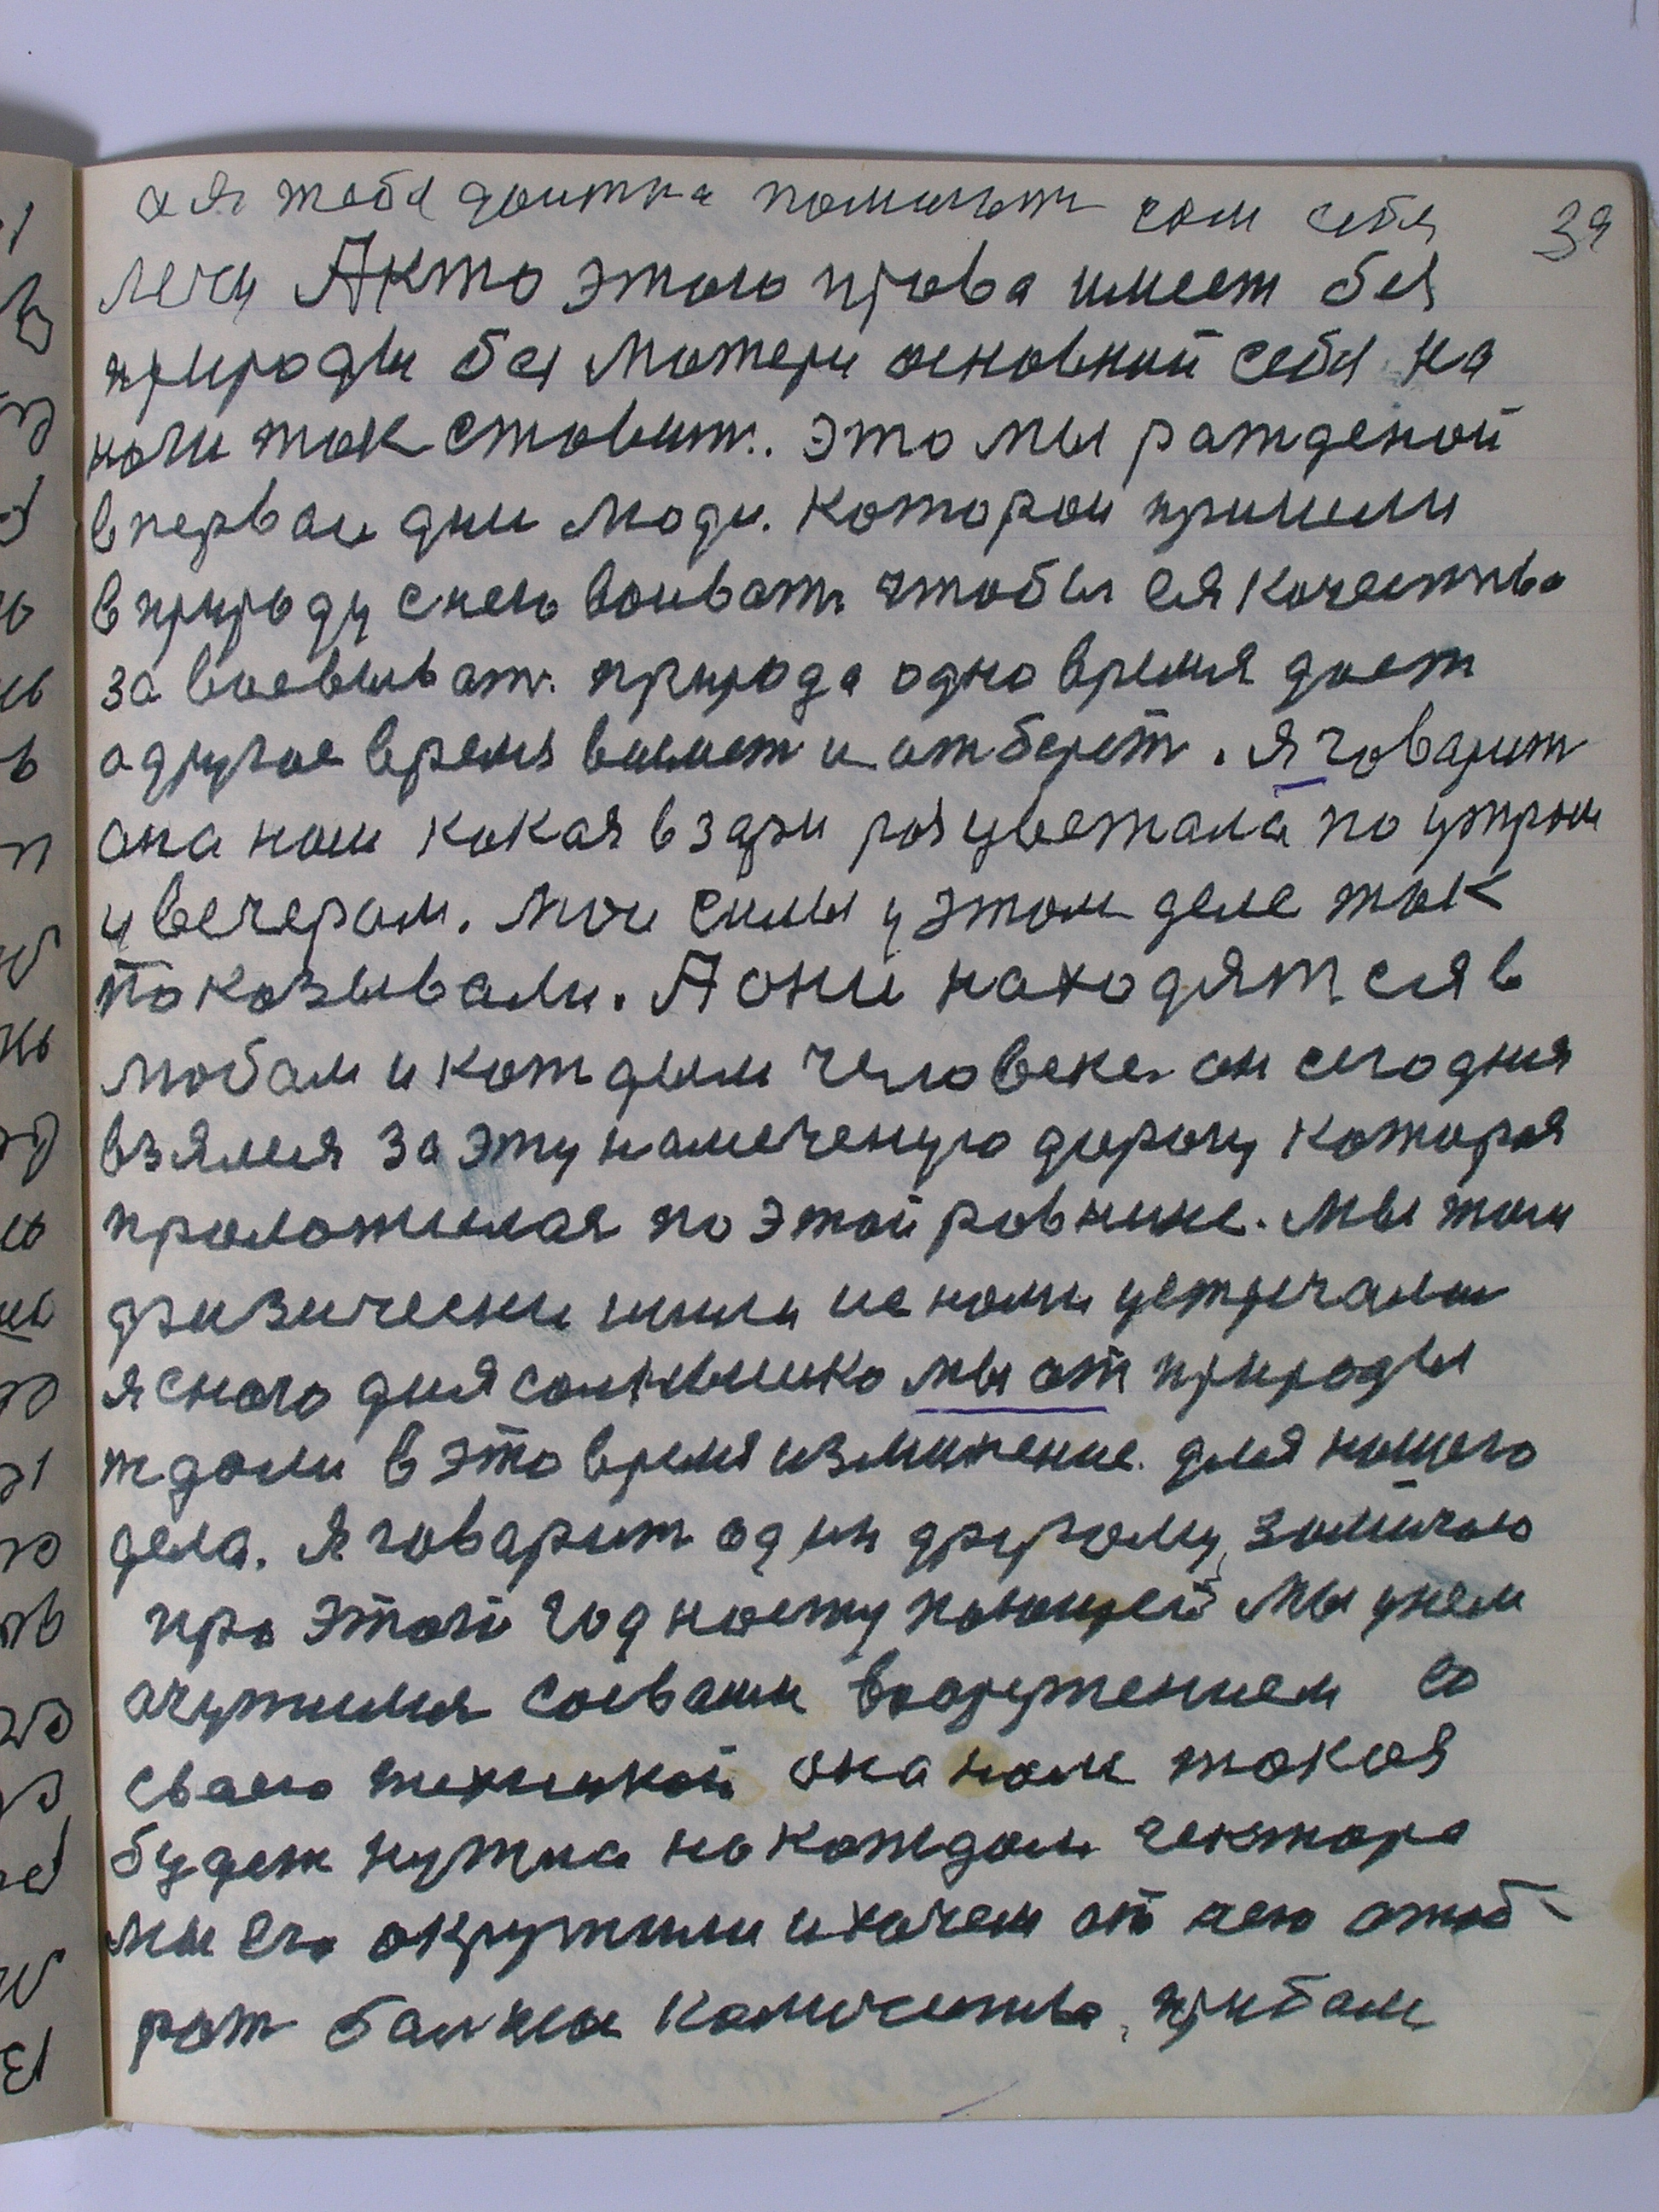 39
а я тебя доитка помилит сам себя
лечи Акто этого права имеет без
природы без Матери основной себя на
ноги так ставит. это мы ражденой
впервои дни люди. которои пришли
вприроду снею воивать чтобы ея качества
завоевывать. природа одно время дает
адругое время возмет и отберет. я говарит
она нам какая взари разцветала по утрам
и вечерам. мои силы у этом деле так
показывали. А они находятся в
любам и каждым человеке он сегодня
взялся за эту намеченую дорогу которая
проложилая по этой равнине. мы там
физически шли и с нами устречали
ясного дня солнышко мы от природы
ждали в это время изминение для нашего
дела. я говарит один другому, замичаю
про этой годносту пающей мы унем
очутился соеваим вооружением со
сваею техникой она нам такая
будет нужна на каждом гектара
мы его окружили и хочем от него отоб-
рат болшы количества, прибам